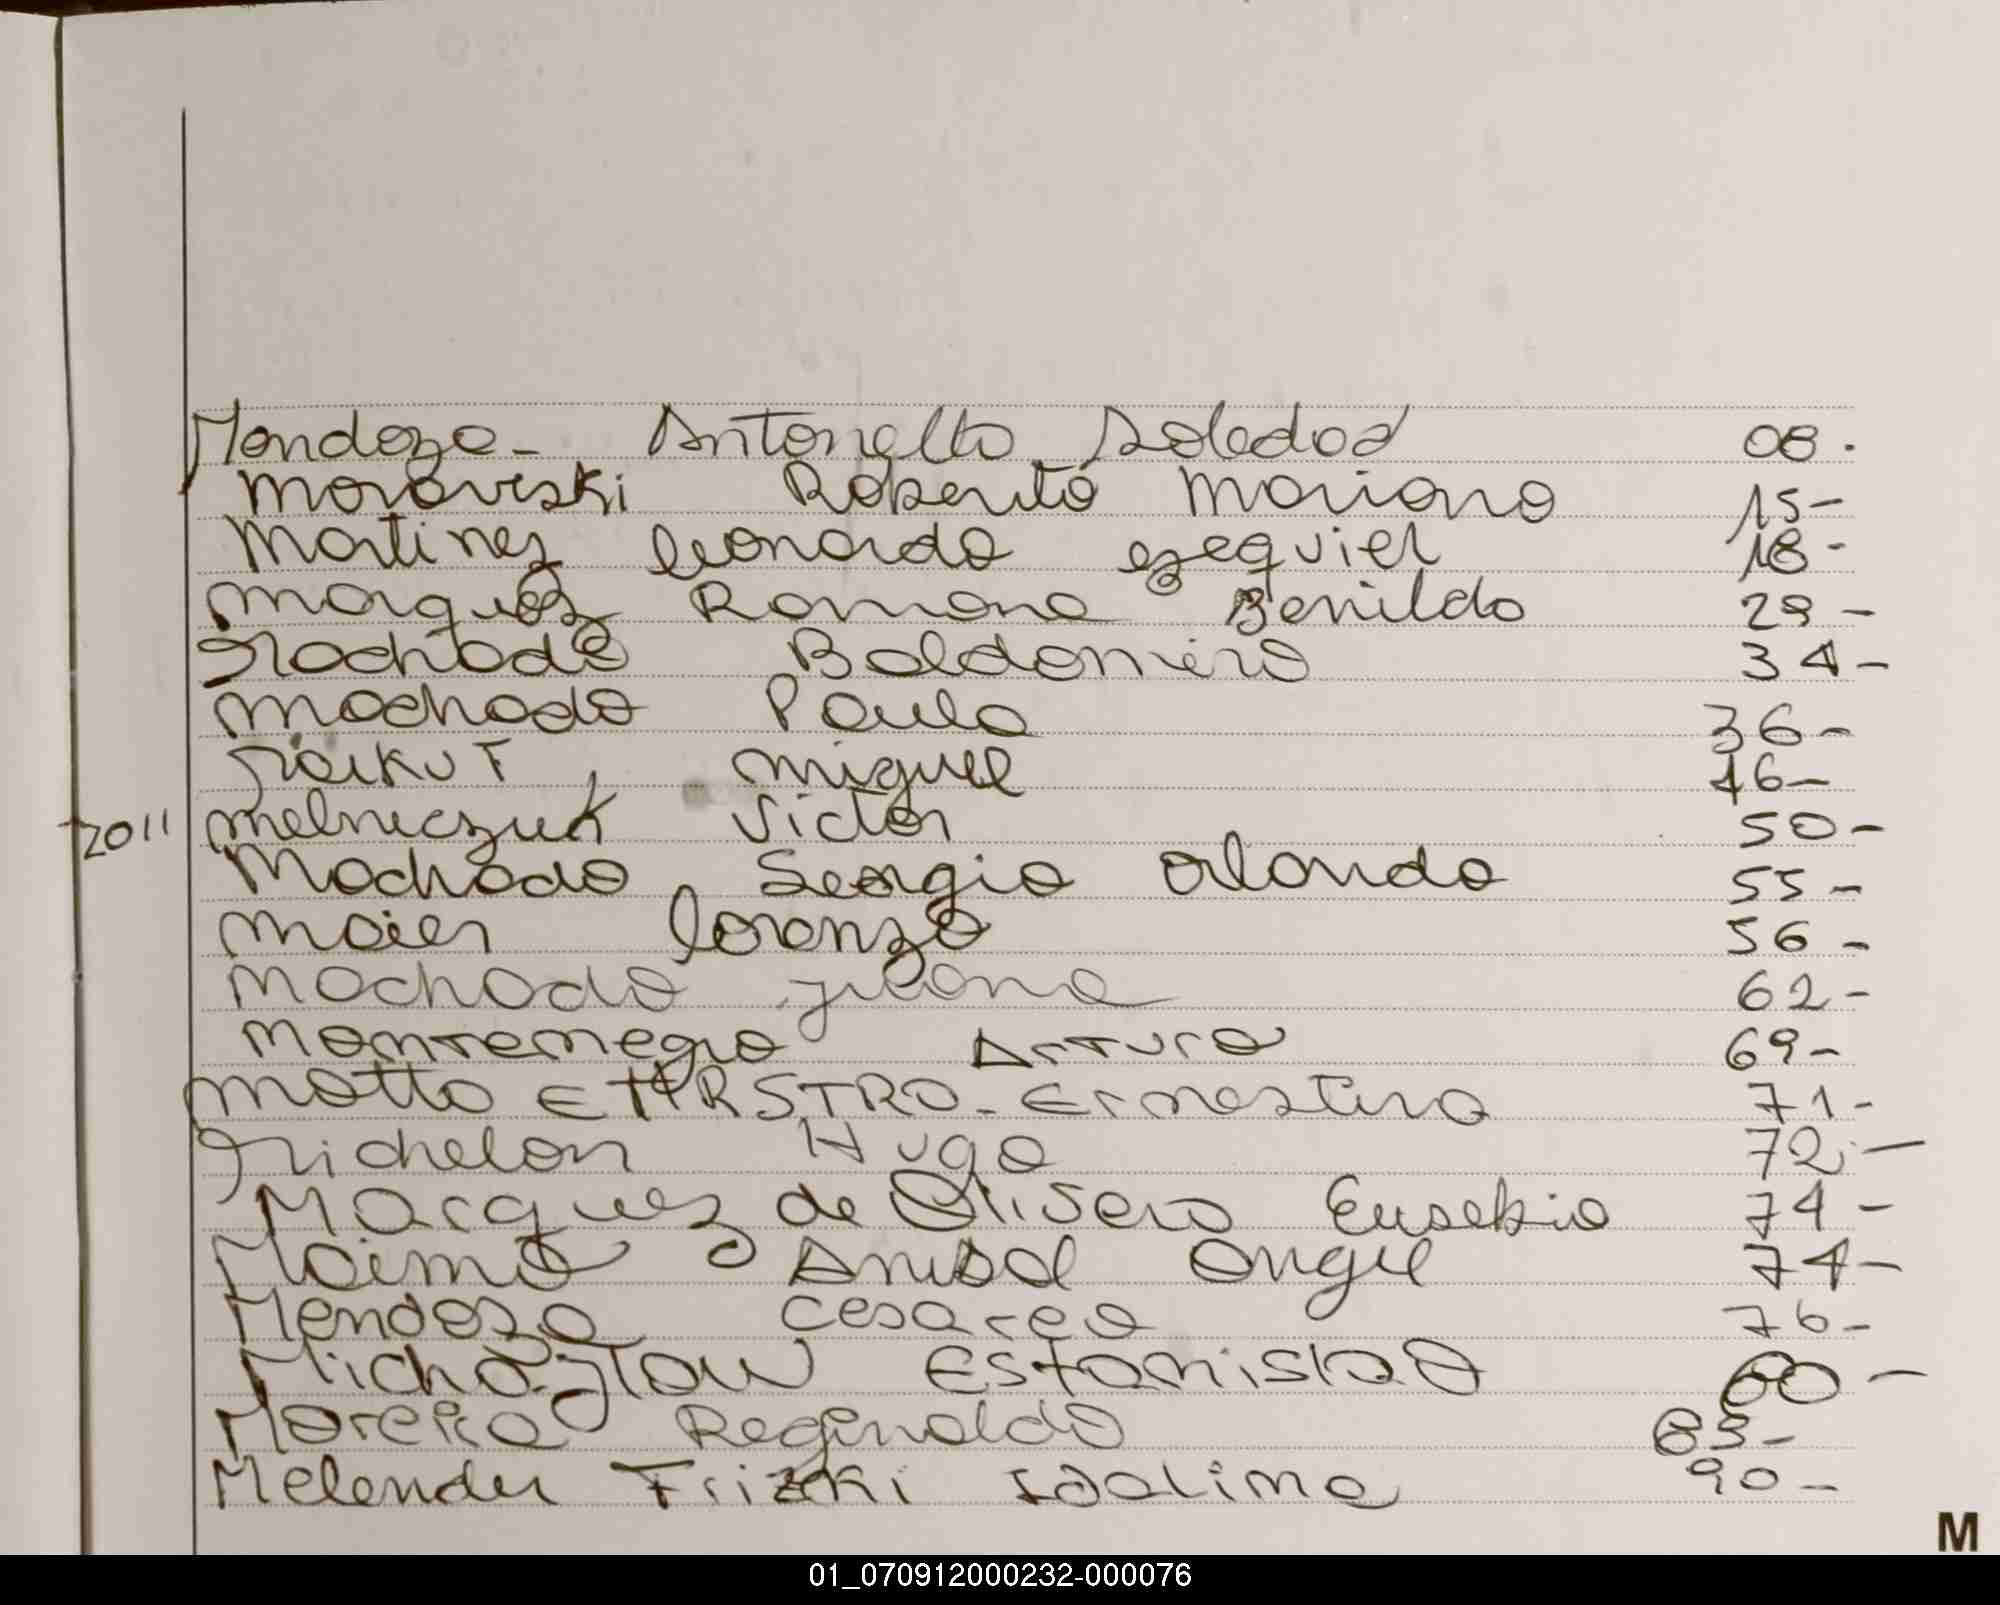 Mendoza - Antonella Soledad 08.
Moroveski Roberto Mariano 15-
Martinez Leonardo Ezequiel 18-
Marquez Ramona Benilda 29-
Machado Baldomero 34-
Machado Paula 36-
Maikut, Miguel 46-
2011 Melniczuk Victor 50-
Machado, Sergio Orlando 55-
Maier Lorenzo 56-
Machado Juana 62-
Montenegro Arturo 69-
Motta - Ernestina 71-
Michelon Hugo 72-
Marquez de Olivera Eusebio 74-
Anibal Angel 74-
Mendoza Cesareo 76-
Estanislao
Moreira Reginaldo 83-
Idalina 90-
M
01_070912000232-000076